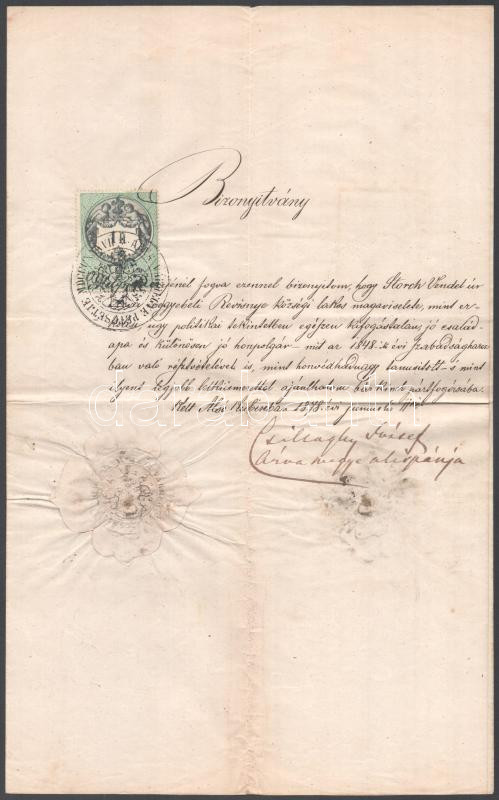 Bizonyitvány
fogva ezennel bizonyitom, hogy Storch Vendel úr
Revisnye községi lakos magaviselete, mint er-
ugy politikai tekintetben egészen kifogástalan, jó család-
apa és különösen jó honpolgár – mit az 1848-ik évi szabadságharcz-
ban való részvételével is, mint honvédhadnagy tanusitott – s mint
ilyent legjobb ajánlhatom bárkinek pártfogásába.
Kelt Alsó Kubinban 1878. évi junius 11
Csillaghy József
Árva megye alispánja